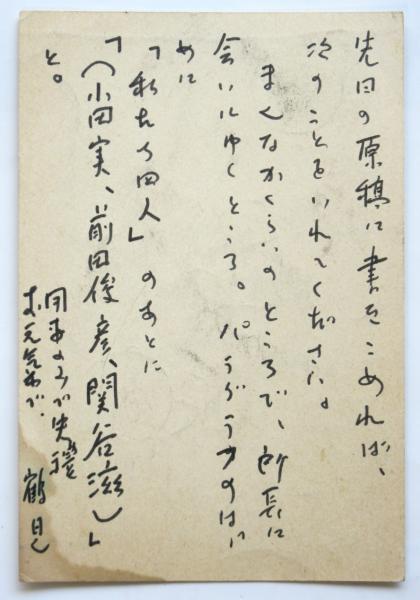 先日の原稿に書きこめれば、
次のことをいれてください。
まんなかくらいのところで、所長に
会いにゆくところ。パラグラフのはじ
めに
「私たち四人」のあとに
「（小田実、前田俊彦、関谷滋）」
と。
用事のみで失礼
お元気で、
鶴見